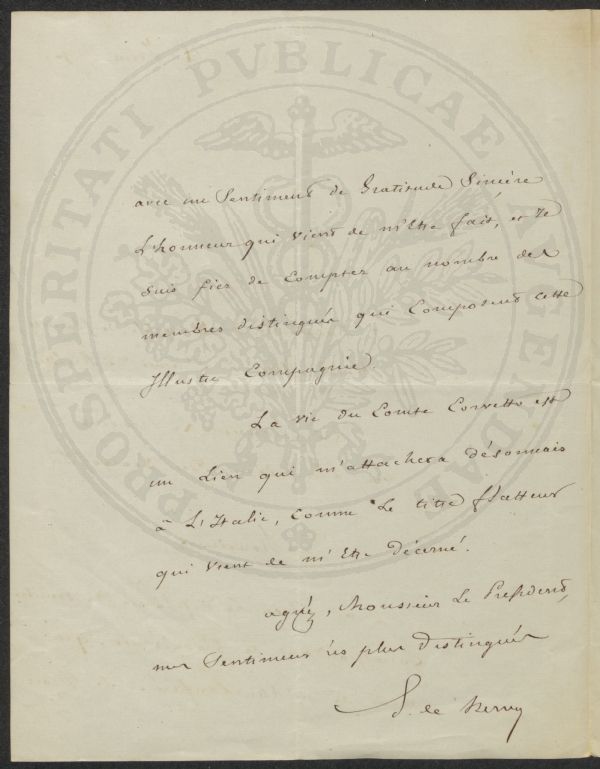 PROSPERITATI PVBLICAE AVGENDAE
avec un Sentiment de Gratitude Sincère
L'honneur qui vient de m'Etre fait, et Je
Suis fier de Compter au nombre des
membres distingués qui Composent cette
Illustre Compagnie.
La vie du Comte Corvetto est
un Lien qui m'attachera désormais
à L'Italie, comme Le titre flatteur
qui vient de m'Etre décerné.
agréez, Monsieur Le President,
mes Sentimens les plus Distingués
de